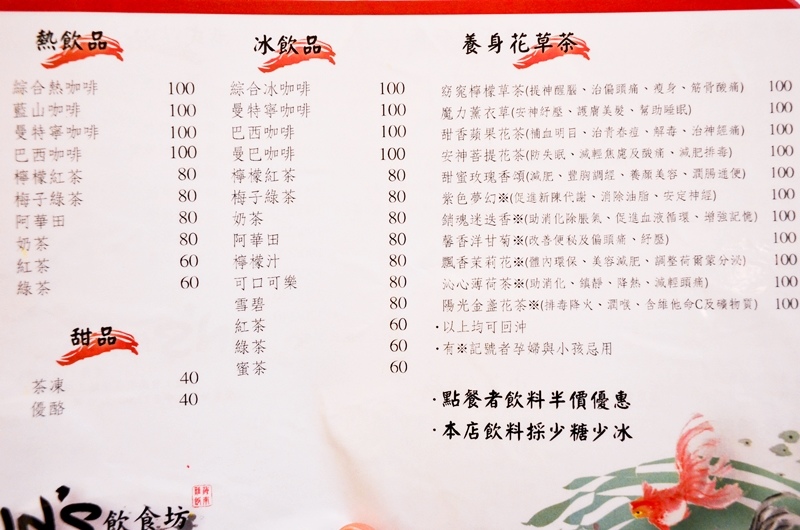 熱飲品
綜合熱咖啡 100
藍山咖啡 100
曼特寧咖啡 100
巴西咖啡 100
檸檬紅茶 80
梅子綠茶 80
阿華田 80
奶茶 80
紅茶 60
綠茶 60
甜品
茶凍 40
優酪 40
冰飲品
綜合冰咖啡 100
曼特寧咖啡 100
巴西咖啡 100
曼巴咖啡 100
檸檬紅茶 80
梅子綠茶 80
奶茶 80
阿華田 80
檸檬汁 80
可口可樂 80
雪碧 80
紅茶 60
綠茶 60
蜜茶 60
養身花草茶
窈窕檸檬草茶(提神醒腦、治偏頭痛、瘦身、筋骨酸痛) 100
魔力薰衣草(安神紓壓、護膚美髮、幫助睡眠) 100
甜香蘋果花茶(補血明目、治青春痘、解毒、治神經痛) 100
安神菩提花茶(防失眠、減輕焦慮及酸痛、減肥排毒) 100
甜蜜玫瑰香頌(減肥、豐胸調經、養顏美容、潤腸通便) 100
紫色夢幻※(促進新陳代謝、消除油脂、安定神經) 100
銷魂迷迭香※(助消化除脹氣、促進血液循環、增強記憶) 100
馨香洋甘菊※(改善便秘及偏頭痛、紓壓) 100
飄香茉莉花※(體內環保、美容減肥、調整荷爾蒙分泌) 100
沁心薄荷茶※(助消化、鎮靜、降熱、減輕頭痛) 100
陽光金盞花茶※(排毒降火、潤喉、含維他命C及礦物質) 100
·以上均可回沖
·有※記號者孕婦與小孩忌用
·點餐者飲料半價優惠
·本店飲料採少糖少冰
N'S飲食坊